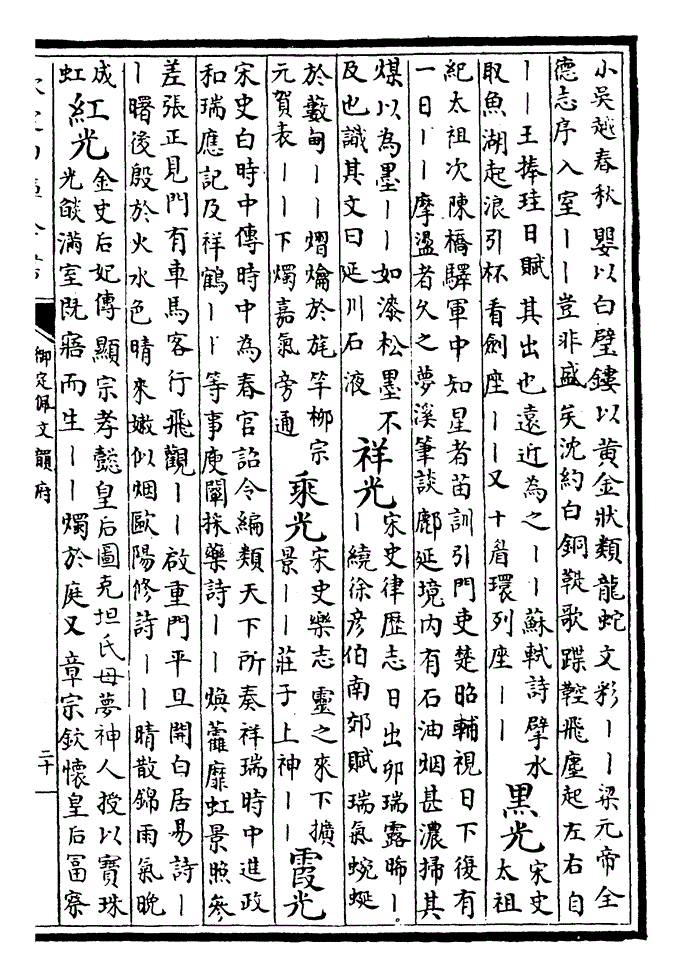 小吳越春秋嬰以白璧鏤以黃金狀類龍蛇文彩丨丨梁元帝全
德志序入室丨丨豈非盛矣沈約白銅鞮歌蹀鞚飛塵起左右自
丨丨王捧珪日賦其出也遠近為之丨丨蘇軾詩擘水
取魚湖起浪引杯看劍座丨丨又十眉環列座丨丨
黑光
宋史
太祖
紀太祖次陳橋驛軍中知星者苗訓引門吏楚昭輔視日下復有
一日丨丨摩盪者久之夢溪筆談鄜延境内有石油烟甚濃掃其
煤以為墨丨丨如漆松墨不
及也識其文曰延川石液
祥光
宋史律歷志日出卯瑞露晞丨。
丨繞徐彦伯南郊賦瑞氣蜿蜒
於藪甸丨丨熠爚於旄竿柳宗
元賀表丨丨下燭嘉氣旁通
乘光
宋史樂志靈之來下擴
景丨丨莊子上神丨丨
霞光
宋史白時中傳時中為春官詔令編類天下所奏祥瑞時中進政
和瑞應記及祥鶴丨丨等事庾闡採藥詩丨丨煥藿靡虹景照參
差張正見門有車馬客行飛觀丨丨啟重門平旦開白居易詩丨
丨曙後殷於火水色晴來嫩似烟歐陽修詩丨丨晴散錦雨氣晚
成
虹
紅光
金史后妃傳顯宗孝懿皇后圖克坦氏母夢神人授以寶珠
光燄滿室既寤而生丨丨燭於庭又章宗欽懷皇后富察
御定佩文韻府
二十